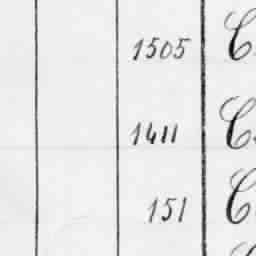 1505 C
1411 C
151 C